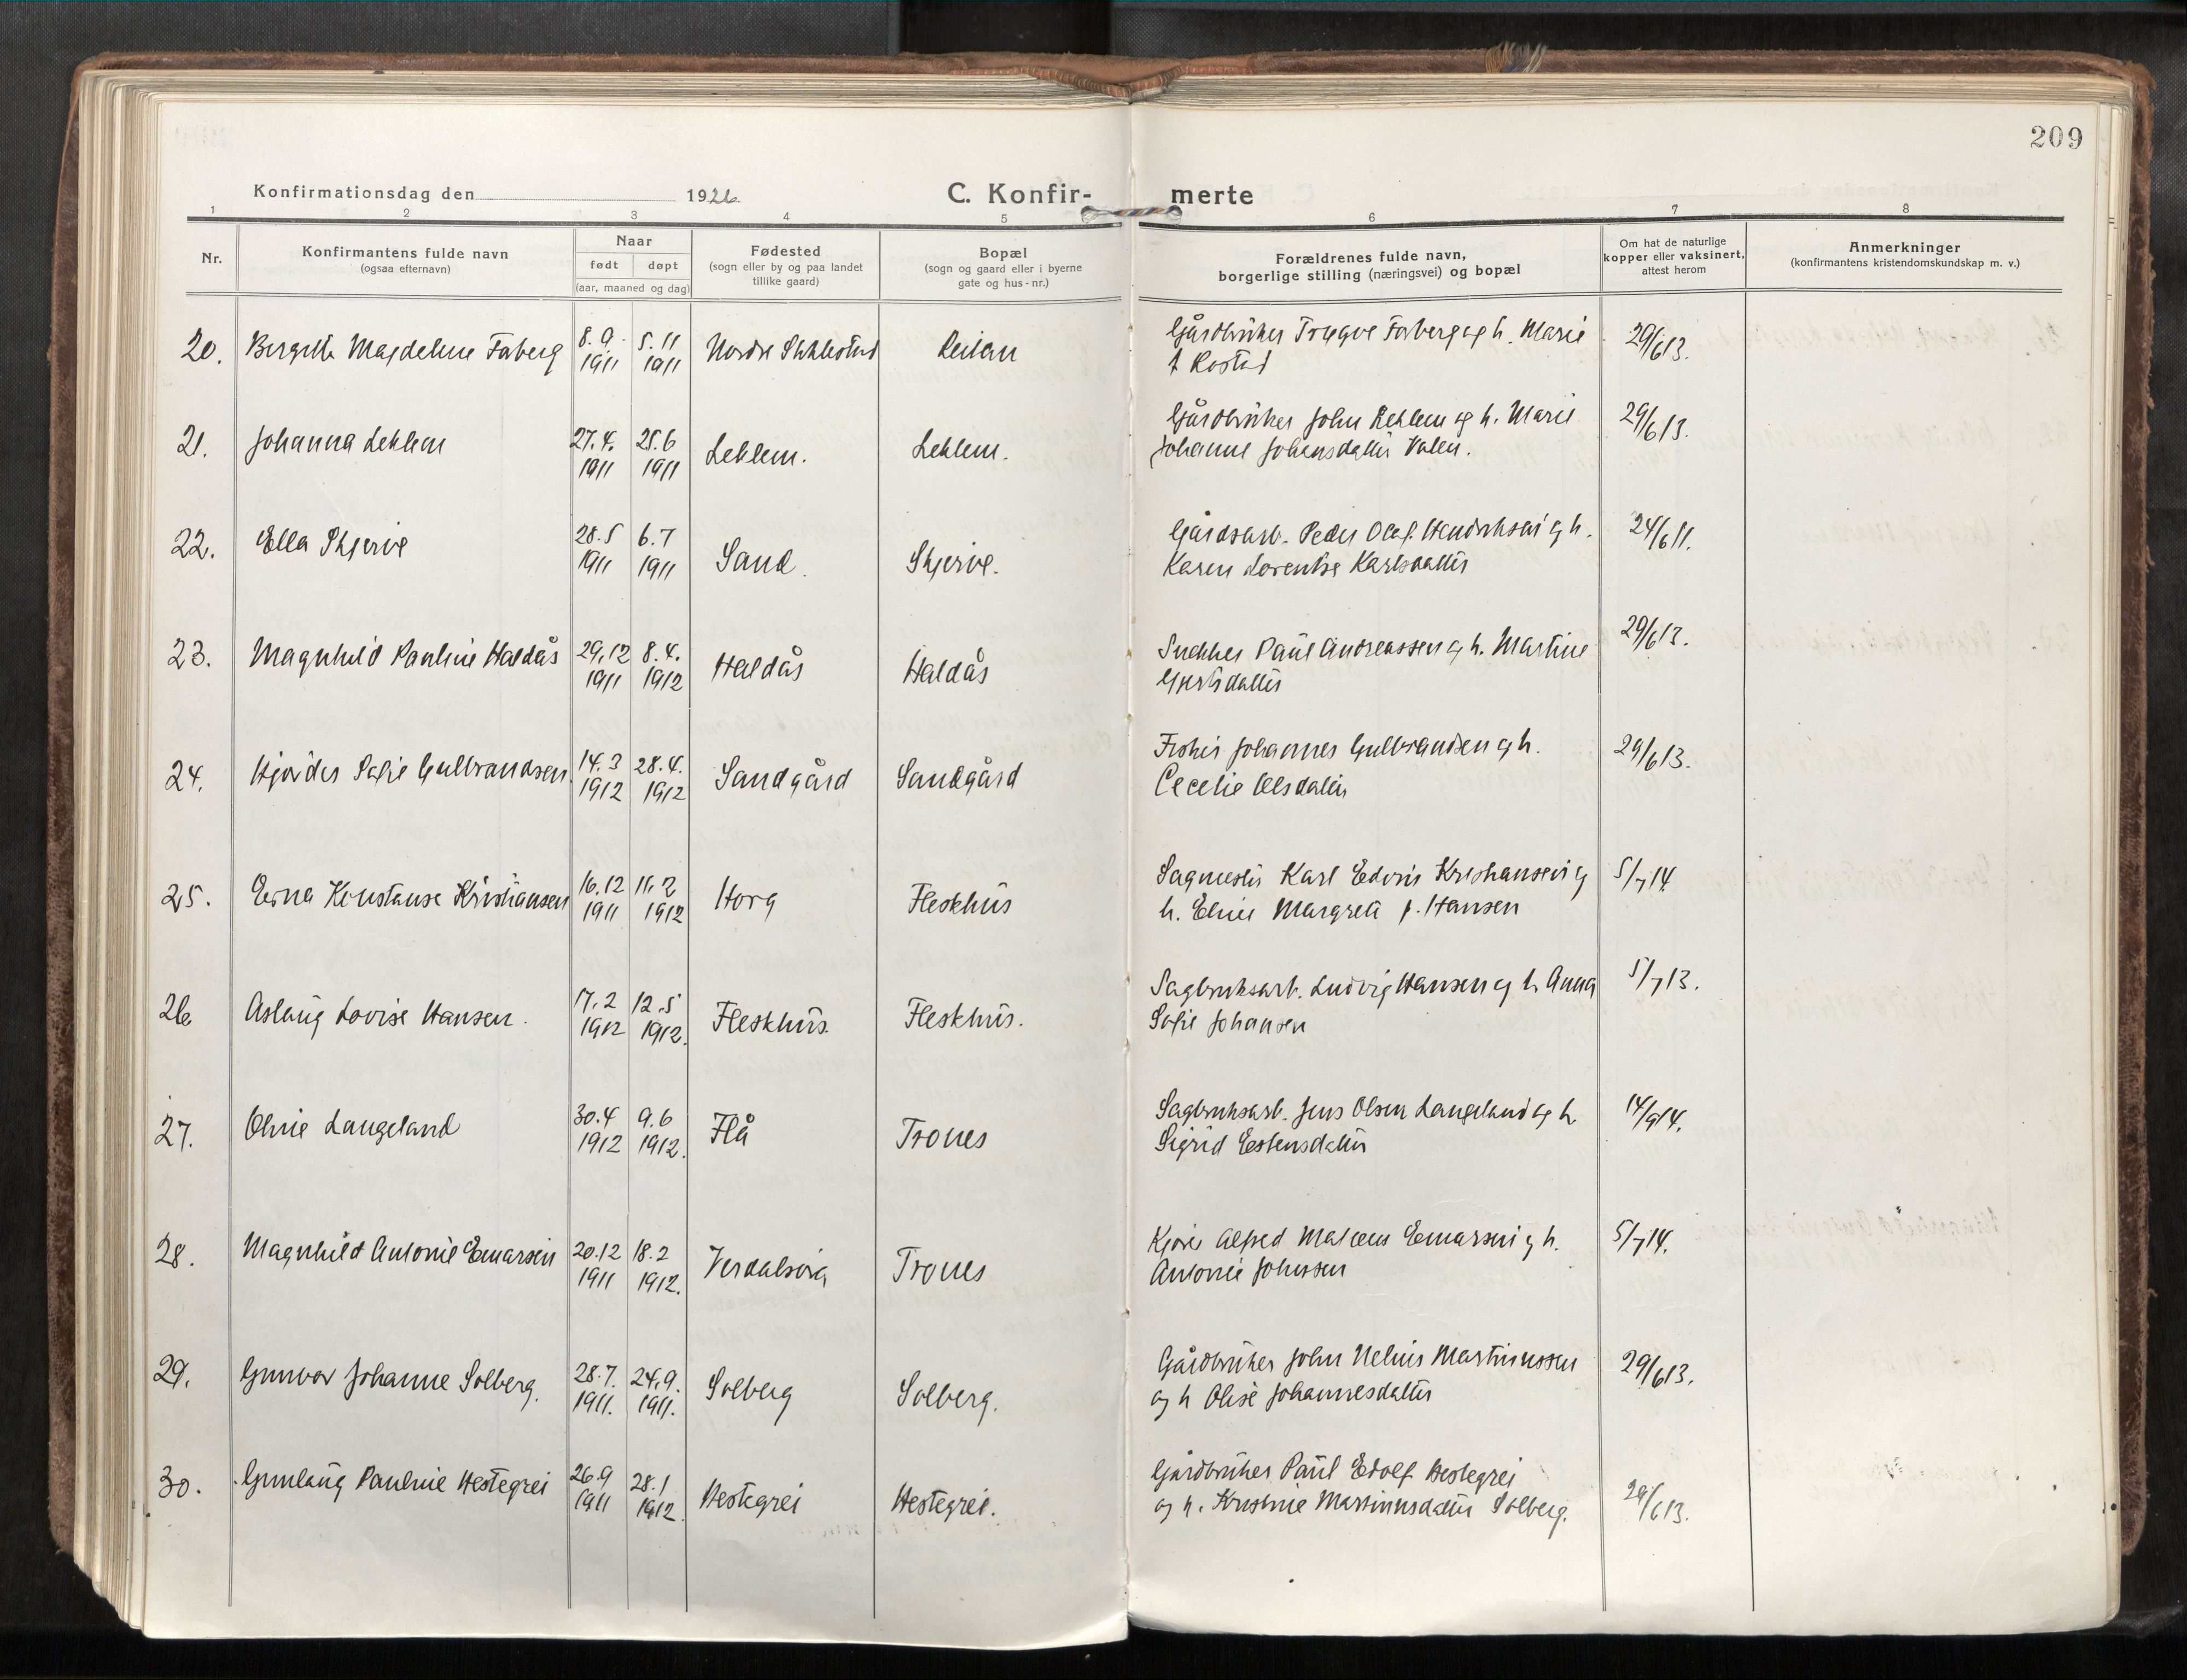 209
Konfirmationsdag den 1926 C. Konfir- merte
1 2 3 4 5 6 7 8
Nr.
Konfirmantens fulde navn
(ogsaa efternavn)
Naar
født døpt
(aar, maaned og dag)
Fødested
(sogn eller by og paa landet
tillike gaard)
Bopæl
(sogn og gaard eller i byerne
gate og hus-nr.)
Forældrenes fulde navn,
borgerlige stilling (næringsvei) og bopæl
Om hat de naturlige
kopper eller vaksinert,
attest herom
Anmerkninger
(konfirmantens kristendomskundskap m. v.)
20. Magdeline Faberg 8.9. 5.11 Nordre Reitan Gårdbruker Trygve Faberg og h. Marie 29/6 13.
1911 1911 f. Rostad
21. Johanna Leklem 27.4. 25.6 Leklem. Leklem. Gårdbruker John Leklem og h. Marie 29/6 13.
1911 1911 Johanne Johansdatter Valen.
22. Ella Skjerve 28.5 6.7 Sand. Skjerve. Gårdsarb. Peder Olaf Hendriksen og h. 24/6 11.
1911 1911 Karen Lorentse Karlsdatter
23. Magnhild Pauline Haldås 29.12 8.4. Haldås Haldås Snekker Paul Andreassen og h. Martine 29/6 13.
1911 1912
24. Hjørdis Sofie Gulbrandsen 14.3 28.4. Sandgård Sandgård Fisker Johannes Gulbrandsen og h. 29/6 13.
1912 1912 Cecelie Olsdatter
25. Erna Konstanse Kristiansen 16.12 11.2 Horg Fleskhus Sagmester Karl Edvin Kristiansen og 5/7 14
1911 1912 h. Eline Margrete f. Hansen
26 Aslaug Lovise Hansen. 17.2 12.5 Fleskhus. Fleskhus. Sagbruksarb. Ludvig Hansen og h. Anna 5/7 13.
1912 1912. Sofie Johansen
27. Oline Langeland 30.4 9.6 Flå Trones Sagbruksarb. Jens Olsen Langeland og h. 14/9 14.
1912 1912. Sigrid Estensdatter
28. Magnhild Antonie Einarsen 20.12 18.2 Verdalsøra Trones Kjører Alfred Einarsen og h. 5/7 14.
1911 1912. Antonie Johnsen
29. Gunvor Johanne Solberg. 28.7. 24.9. Solberg Solberg. Gårdbruker John Nelius Martinussen 29/6 13.
1911. 1911. og h Olise Johannesdatter
30. Gunlaug Pauline Hestegrei 26.9 28.1 Hestegrei Hestegrei. Gårdbruker Paul Edolf Hestegrei
1911 1912. og h. Kristine Martinusdatter Solberg. 29/6 13.